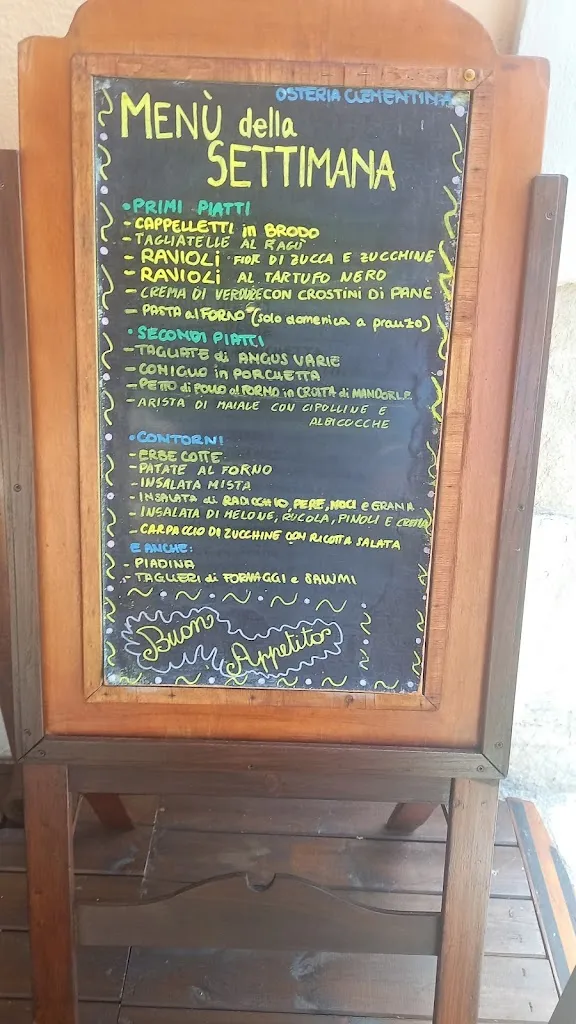 OSTERIA CLEMENTINA
MENÙ della
SETTIMANA
• PRIMI PIATTI
- CAPPELLETTI in BRODO
- TAGLIATELLE AL RAGÙ
- RAVIOLI FIOR DI ZUCCA E ZUCCHINE
- RAVIOLI AL TARTUFO NERO
- CREMA DI VERDURE CON CROSTINI DI PANE
- PASTA al FORNO (solo domenica a pranzo)
• SECONDI PIATTI
- TAGLIATE di ANGUS VARIE
- CONIGLIO in PORCHETTA
- PETTO di POLLO al FORNO in CROSTA di MANDORLE
- ARISTA DI MAIALE CON CIPOLLINE E
ALBICOCCHE
• CONTORNI
- ERBE COTTE
- PATATE AL FORNO
- INSALATA MISTA
- INSALATA di RADICCHIO, PERE, NOCI e GRANA
- INSALATA DI MELONE, RUCOLA, PINOLI E
- CARPACCIO DI ZUCCHINE CON RICOTTA SALATA
E ANCHE:
- PIADINA
- TAGLIERI di FORMAGGI e SALUMI
Buon
Appetito